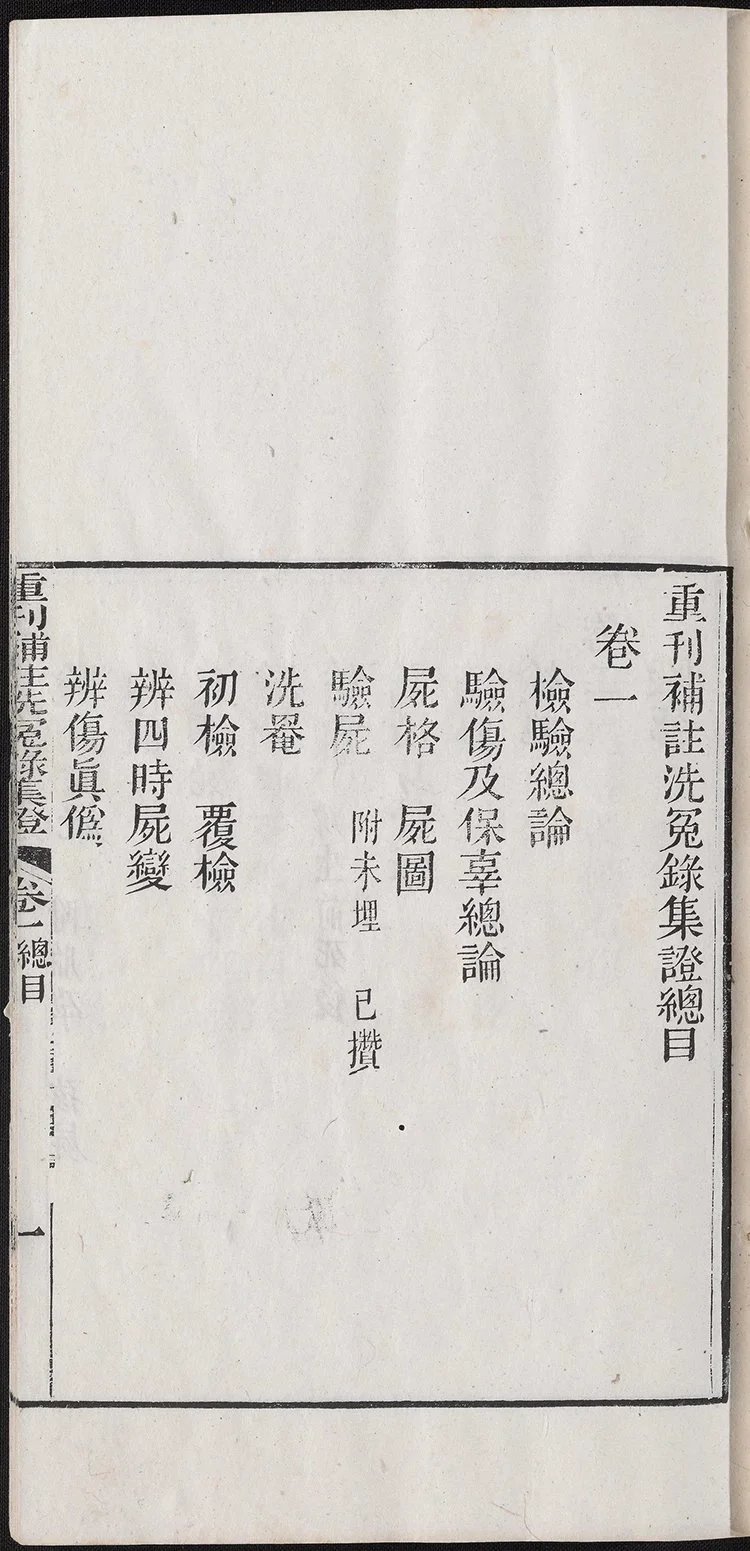 重刊補註洗冤錄集證總目
卷一
檢驗總論
驗傷及保辜總論
屍格　屍圖
驗屍　附未埋　已攢
洗罨
初檢　覆檢
辨四時屍變
辨傷眞僞
重刊補註洗冤錄集證　卷一總目　一